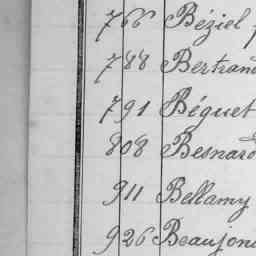 766 Béziel
788 Bertrand
791 Béguet
808 Besnard
911 Bellamy
926 Beaujon